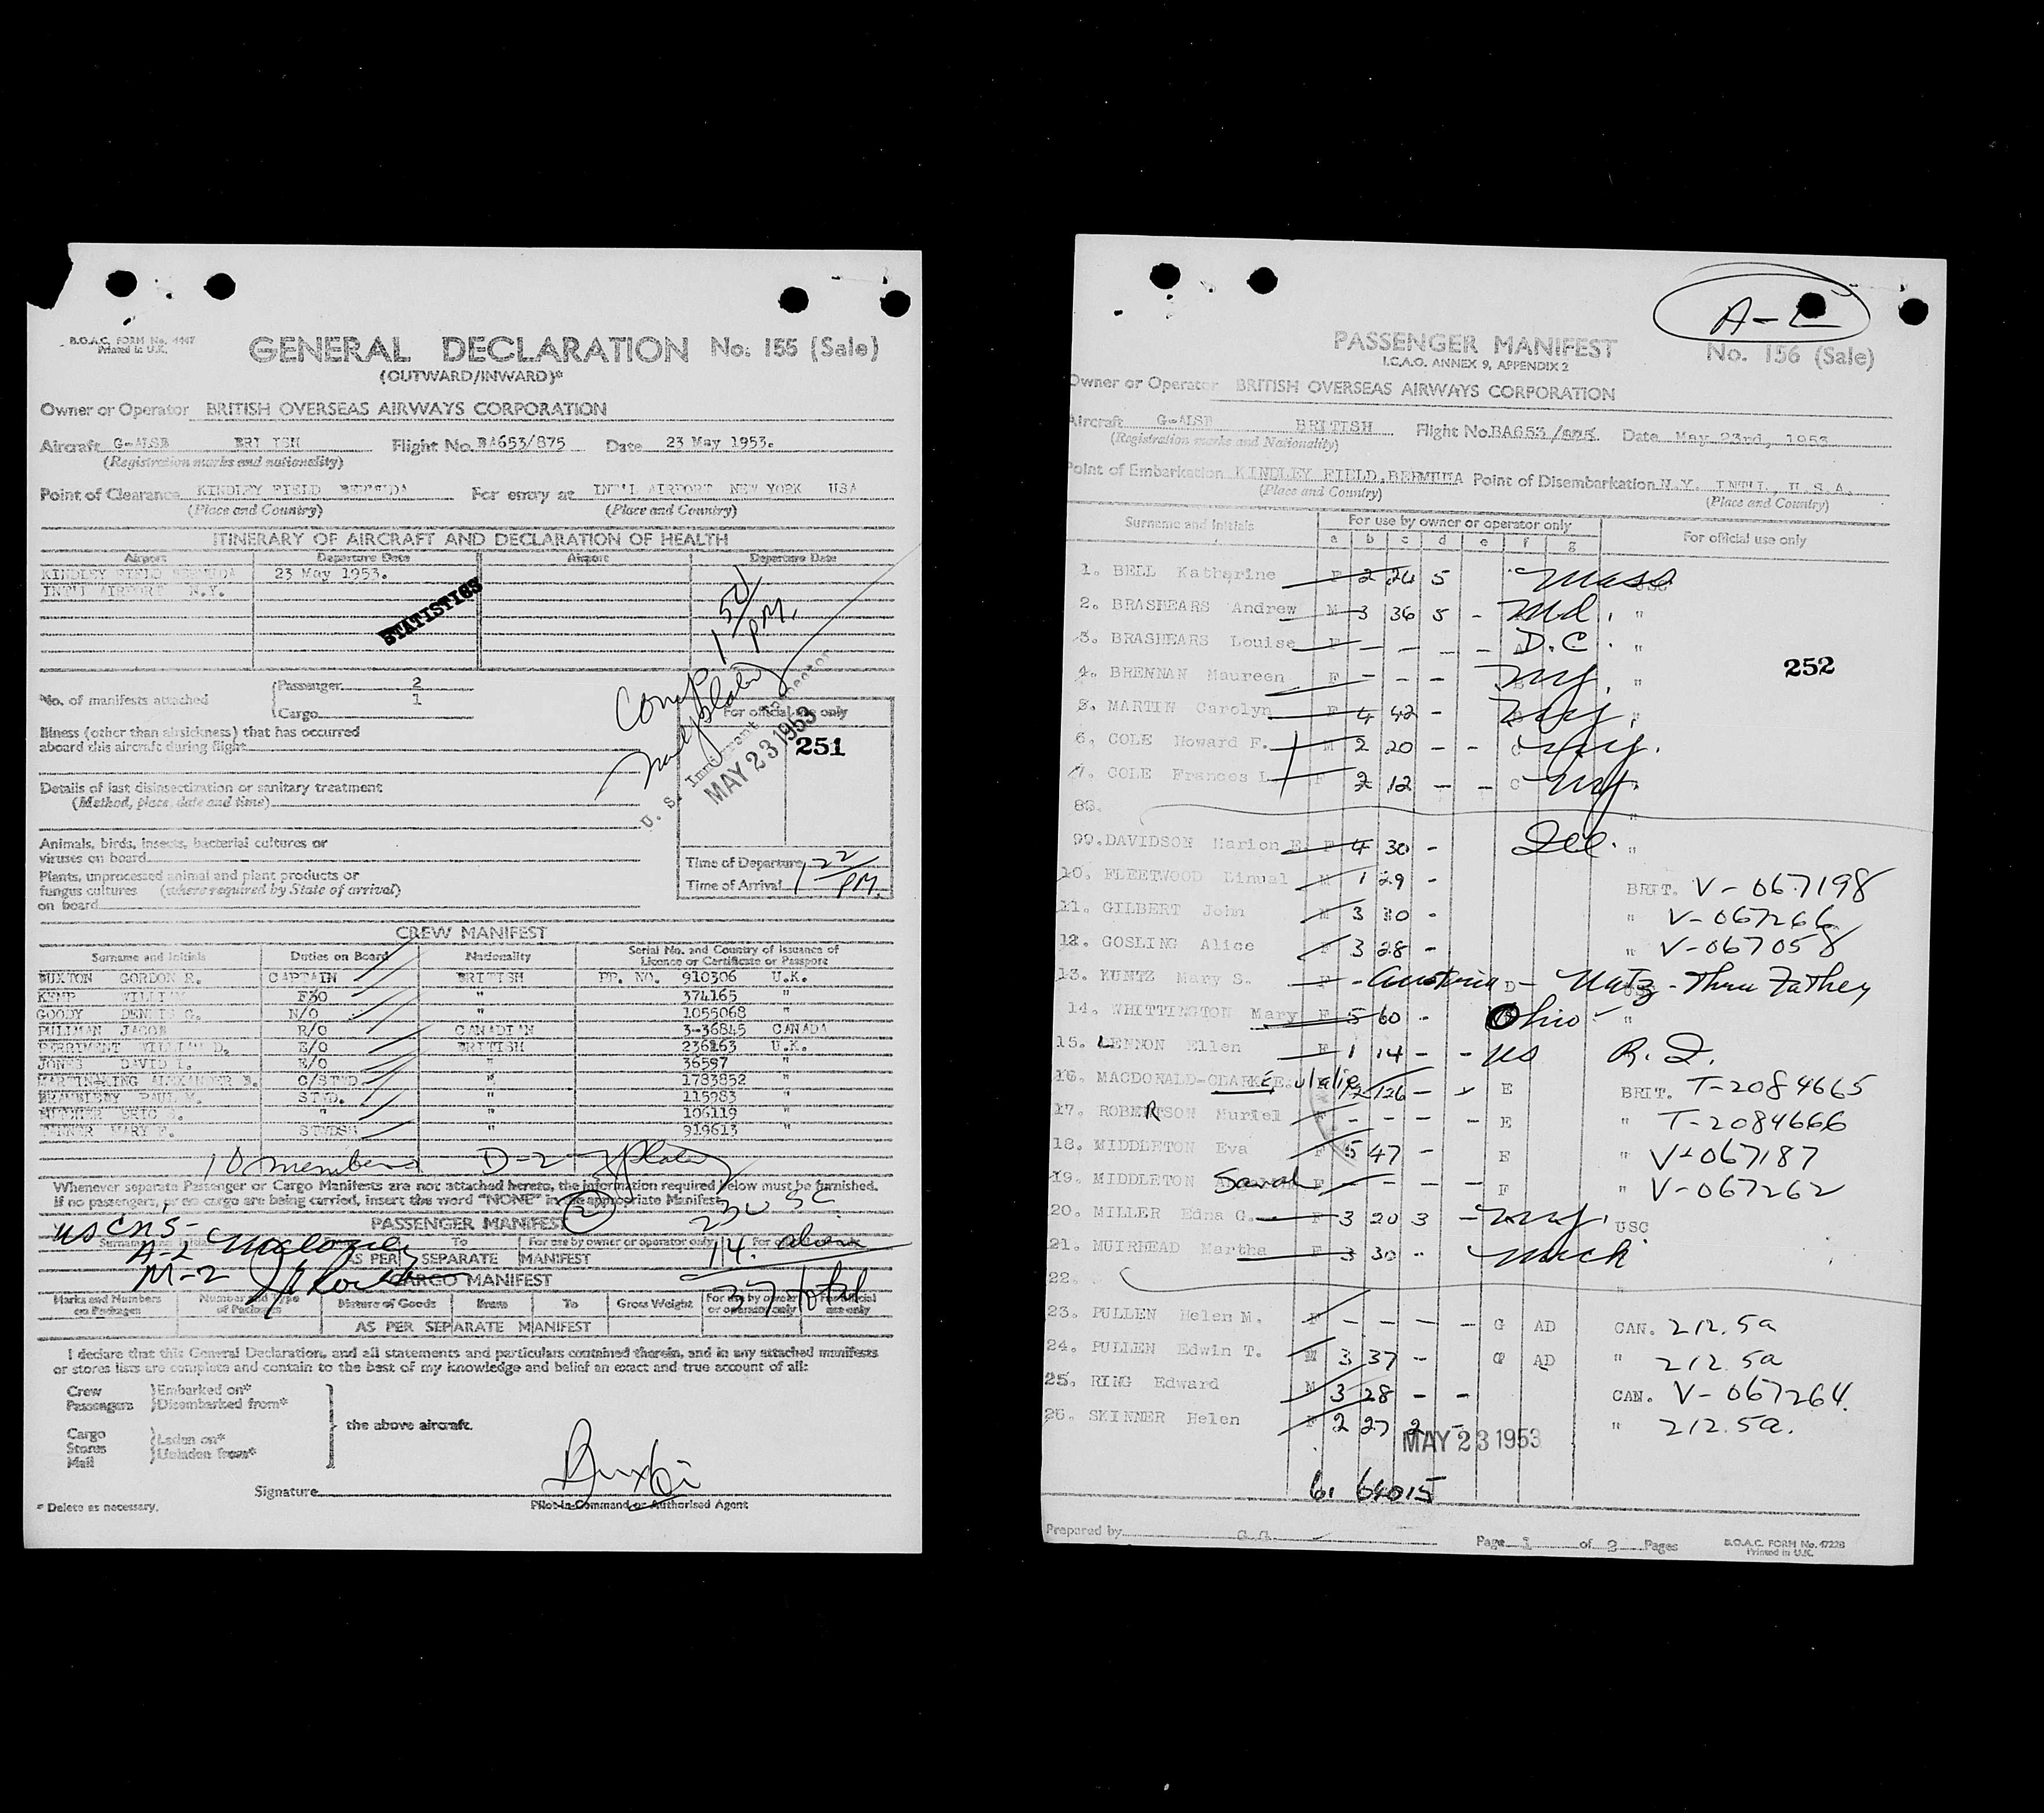 B.O.A.C. FORM No. 4447
Printed in U.K.
GENERAL DECLARATION No. 155 (Sale)
(OUTWARD/INWARD)*
Owner or Operator BRITISH OVERSEAS AIRWAYS CORPORATION
Aircraft G-ALSB BRI ISH Flight No. BA653/875 Date 23 May 1953.
(Registration marks and nationality)
Point of Clearance KINDLEY FIELD BERMUDA For entry at INT'L AIRPORT NEW YORK USA
(Place and Country) (Place and Country)
ITINERARY OF AIRCRAFT AND DECLARATION OF HEALTH
Airport Departure Date Airport Departure Date
KINDLEY FIELD BERMUDA 23 May 1953.
INT'L AIRPORT N.Y.
STATISTICS
1 50/ PM.
No. of manifests attached
Passenger 2
Cargo 1
Comp
U. S. Immigrant Inspector
MAY 23 1953
For official use only
251
Illness (other than airsickness) that has occurred
aboard this aircraft during flight
Details of last disinsectization or sanitary treatment
(Method, place, date and time)
Animals, birds, insects, bacterial cultures or
viruses on board
Plants, unprocessed animal and plant products or
fungus cultures (where required by State of arrival)
on board
Time of Departure
Time of Arrival 1 22/ PM.
CREW MANIFEST
Surname and Initials Duties on Board Nationality Serial No. and Country of Issuance of
Licence or Certificate or Passport
BUXTON GORDON R. CAPTAIN BRITISH PP. NO. 910306 U.K.
KEMP WILLI F30 " 374165 "
GOODY DENNIS G. N/O " 1055068 "
PULLMAN JACOB R/O CANADIAN 3-36845 CANADA
WILLIAM D. E/O BRITISH 236163 U.K.
JONES DAVID I. E/O " 36597 "
MARTIN-KING ALEXANDER B. C/STWD. " 1783852 "
BRAMBLEBY PAUL STWD. " 115983 "
ERIC " " 106119 "
MARY STWDSS " 919613 "
10 members D-2
Whenever separate Passenger or Cargo Manifests are not attached hereto, the information required below must be furnished.
If no passengers, or no cargo are being carried, insert the word "NONE" in the appropriate Manifest.
2
23 USC
PASSENGER MANIFEST
US Cns-
Surname and Initials To For use by owner or operator only For official
14. aliens
A-2 Maloney
AS PER SEPARATE MANIFEST
M-2
CARGO MANIFEST
37 total
Marks and Numbers on Packages Number and Type of Packages Nature of Goods From To Gross Weight For use by owner or operator only For official use only
AS PER SEPARATE MANIFEST
I declare that this General Declaration, and all statements and particulars contained therein, and in any attached manifests
or stores lists are complete and contain to the best of my knowledge and belief an exact and true account of all:
Crew
Passengers
Embarked on*
Disembarked from*
the above aircraft.
Cargo
Stores
Mail
Laden on*
Unladen from*
Signature Buxton
* Delete as necessary. Pilot-in-Command or Authorised Agent
A-L
PASSENGER MANIFEST No. 156 (Sale)
I.C.A.O. ANNEX 9, APPENDIX 2
Owner or Operator BRITISH OVERSEAS AIRWAYS CORPORATION
Aircraft G-ALSB BRITISH Flight No. BA653/875. Date May 23rd, 1953
(Registration marks and Nationality)
Point of Embarkation KINDLEY FIELD, BERMUDA Point of Disembarkation N.Y. INT'L, U.S.A.
(Place and Country) (Place and Country)
Surname and Initials For use by owner or operator only For official use only
a b c d e f g
1. BELL Katharine F 2 24 5 Mass USC
2. BRASHEARS Andrew M 3 36 5 - Md. "
3. BRASHEARS Louise F - - - - D.C. "
252
4. BRENNAN Maureen F - - - NY. "
5. MARTIN Carolyn F 4 42 - NY. "
6. COLE Howard F. M 2 20 - - C NY.
7. COLE Frances L F 2 12 - - C NY. "
88.
99. DAVIDSON Marion E. F 4 30 - Ill. "
10. FLEETWOOD Linual M 1 29 - BRIT. V-067198
11. GILBERT John M 3 30 - " V-067266
12. GOSLING Alice F 3 28 - " V-067058
13. KUNTZ Mary S. F - Austria D - Natz - thru Father
14. WHITTINGTON Mary F 5 60 - Ohio - "
15. LENNON Ellen F 1 14 - - US R.I.
16. MACDONALD-CLARKE Eulalie 12 126 - E BRIT. T-2084665
17. ROBERTSON Muriel F - - - - E " T-2084666
18. MIDDLETON Eva F 5 47 - E " V-067187
19. MIDDLETON Sarah F - - - - F " V-067262
20. MILLER Edna G. F 3 20 3 - NY. USC
21. MUIRHEAD Martha F 3 30 - Mich
22. "
23. PULLEN Helen M. F - - - - G AD CAN. 212.5a
24. PULLEN Edwin T. M 3 37 - G AD " 212.5a
25. RING Edward M 3 28 - - CAN. V-067264.
26. SKINNER Helen F 2 27 2 - " 212.5a.
MAY 23 1953
61 64015
Prepared by G.G. Page 1 of 2 Pages B.O.A.C. FORM No. 4722B
Printed in U.K.